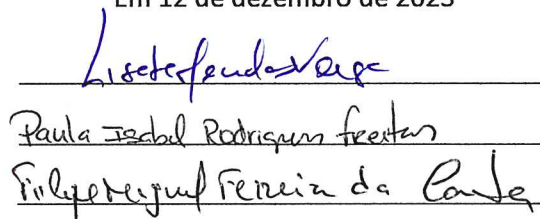 Em 12 de dezembro de 2023
Paula Isabel Rodrigues Freitas
Filipe Miguel Ferreira da